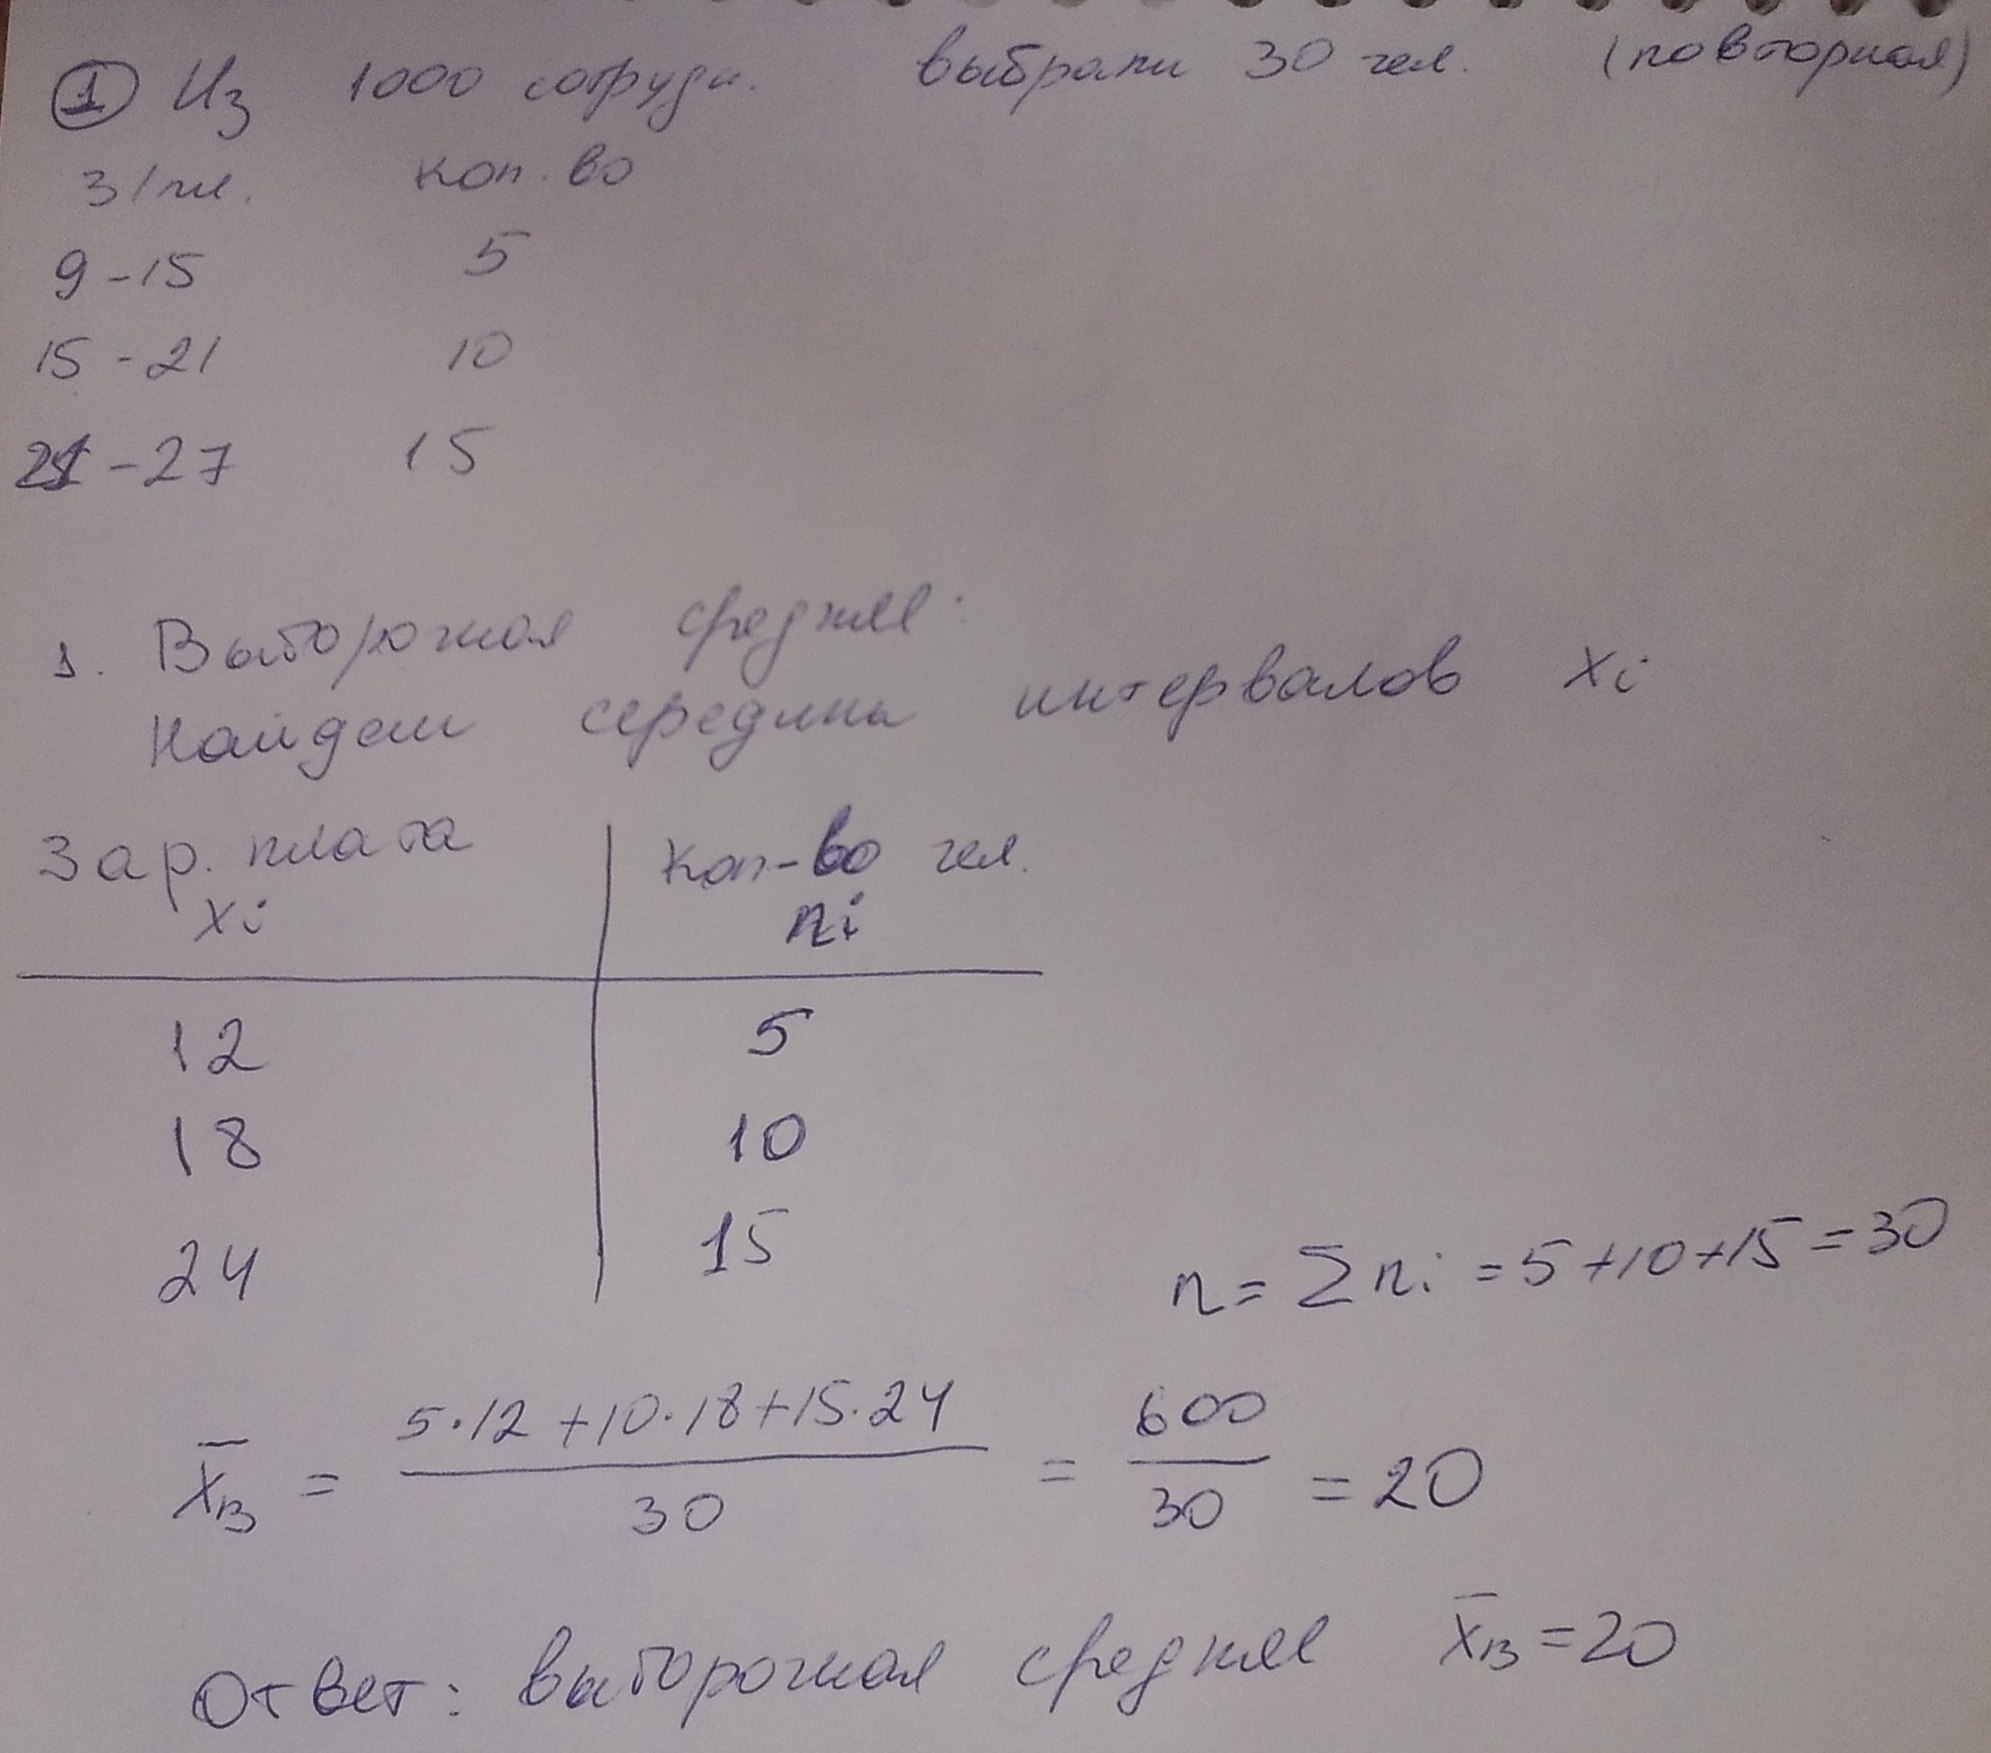 ① Из 1000 сотрудн. выбрали 30 чел. (повторная)
З/пл. кол.во
9-15 5
15-21 10
21-27 15
1. Выборочная среднее:
Найдем середины интервалов xi
Зар. плата кол-во чел.
xi ni
12 5
18 10
24 15
n = Σni = 5+10+15=30
x̄в = (5·12+10·18+15·24)/30 = 600/30 = 20
Ответ: выборочная среднее x̄в=20